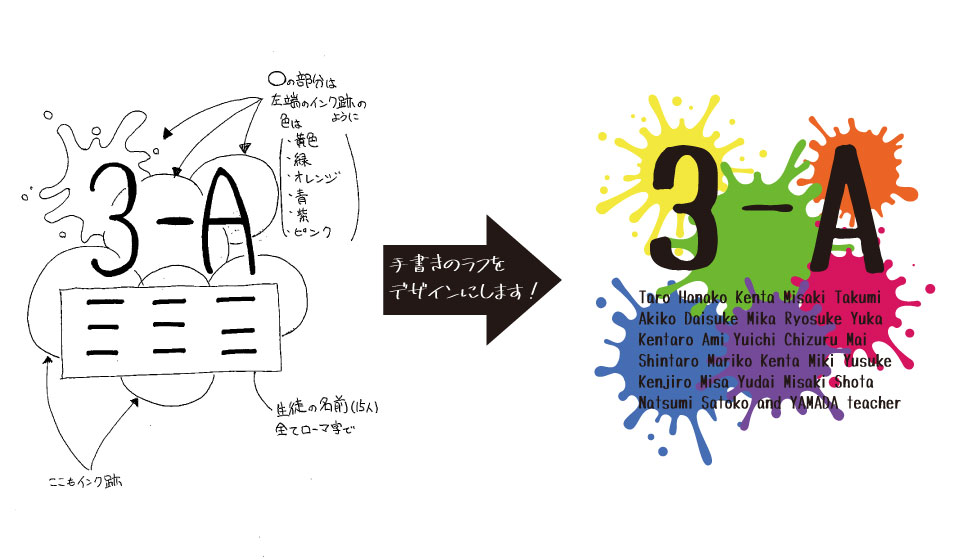 〇の部分は
左端のインク跡の
ように
色は
・黄色
・緑
・オレンジ
・青
・紫
・ピンク
3-A
生徒の名前(15人)
全てローマ字で
ここもインク跡
手書きのラフを
デザインにします!
3-A
Taro Hanako Kenta Misaki Takumi
Akiko Daisuke Mika Ryosuke Yuka
Kentaro Ami Yuichi Chizuru Mai
Shintaro Mariko Kenta Miki Yusuke
Kenjiro Misa Yudai Misaki Shota
Natsumi Satoko and YAMADA teacher